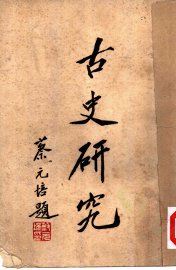 古史研究
蔡元培題